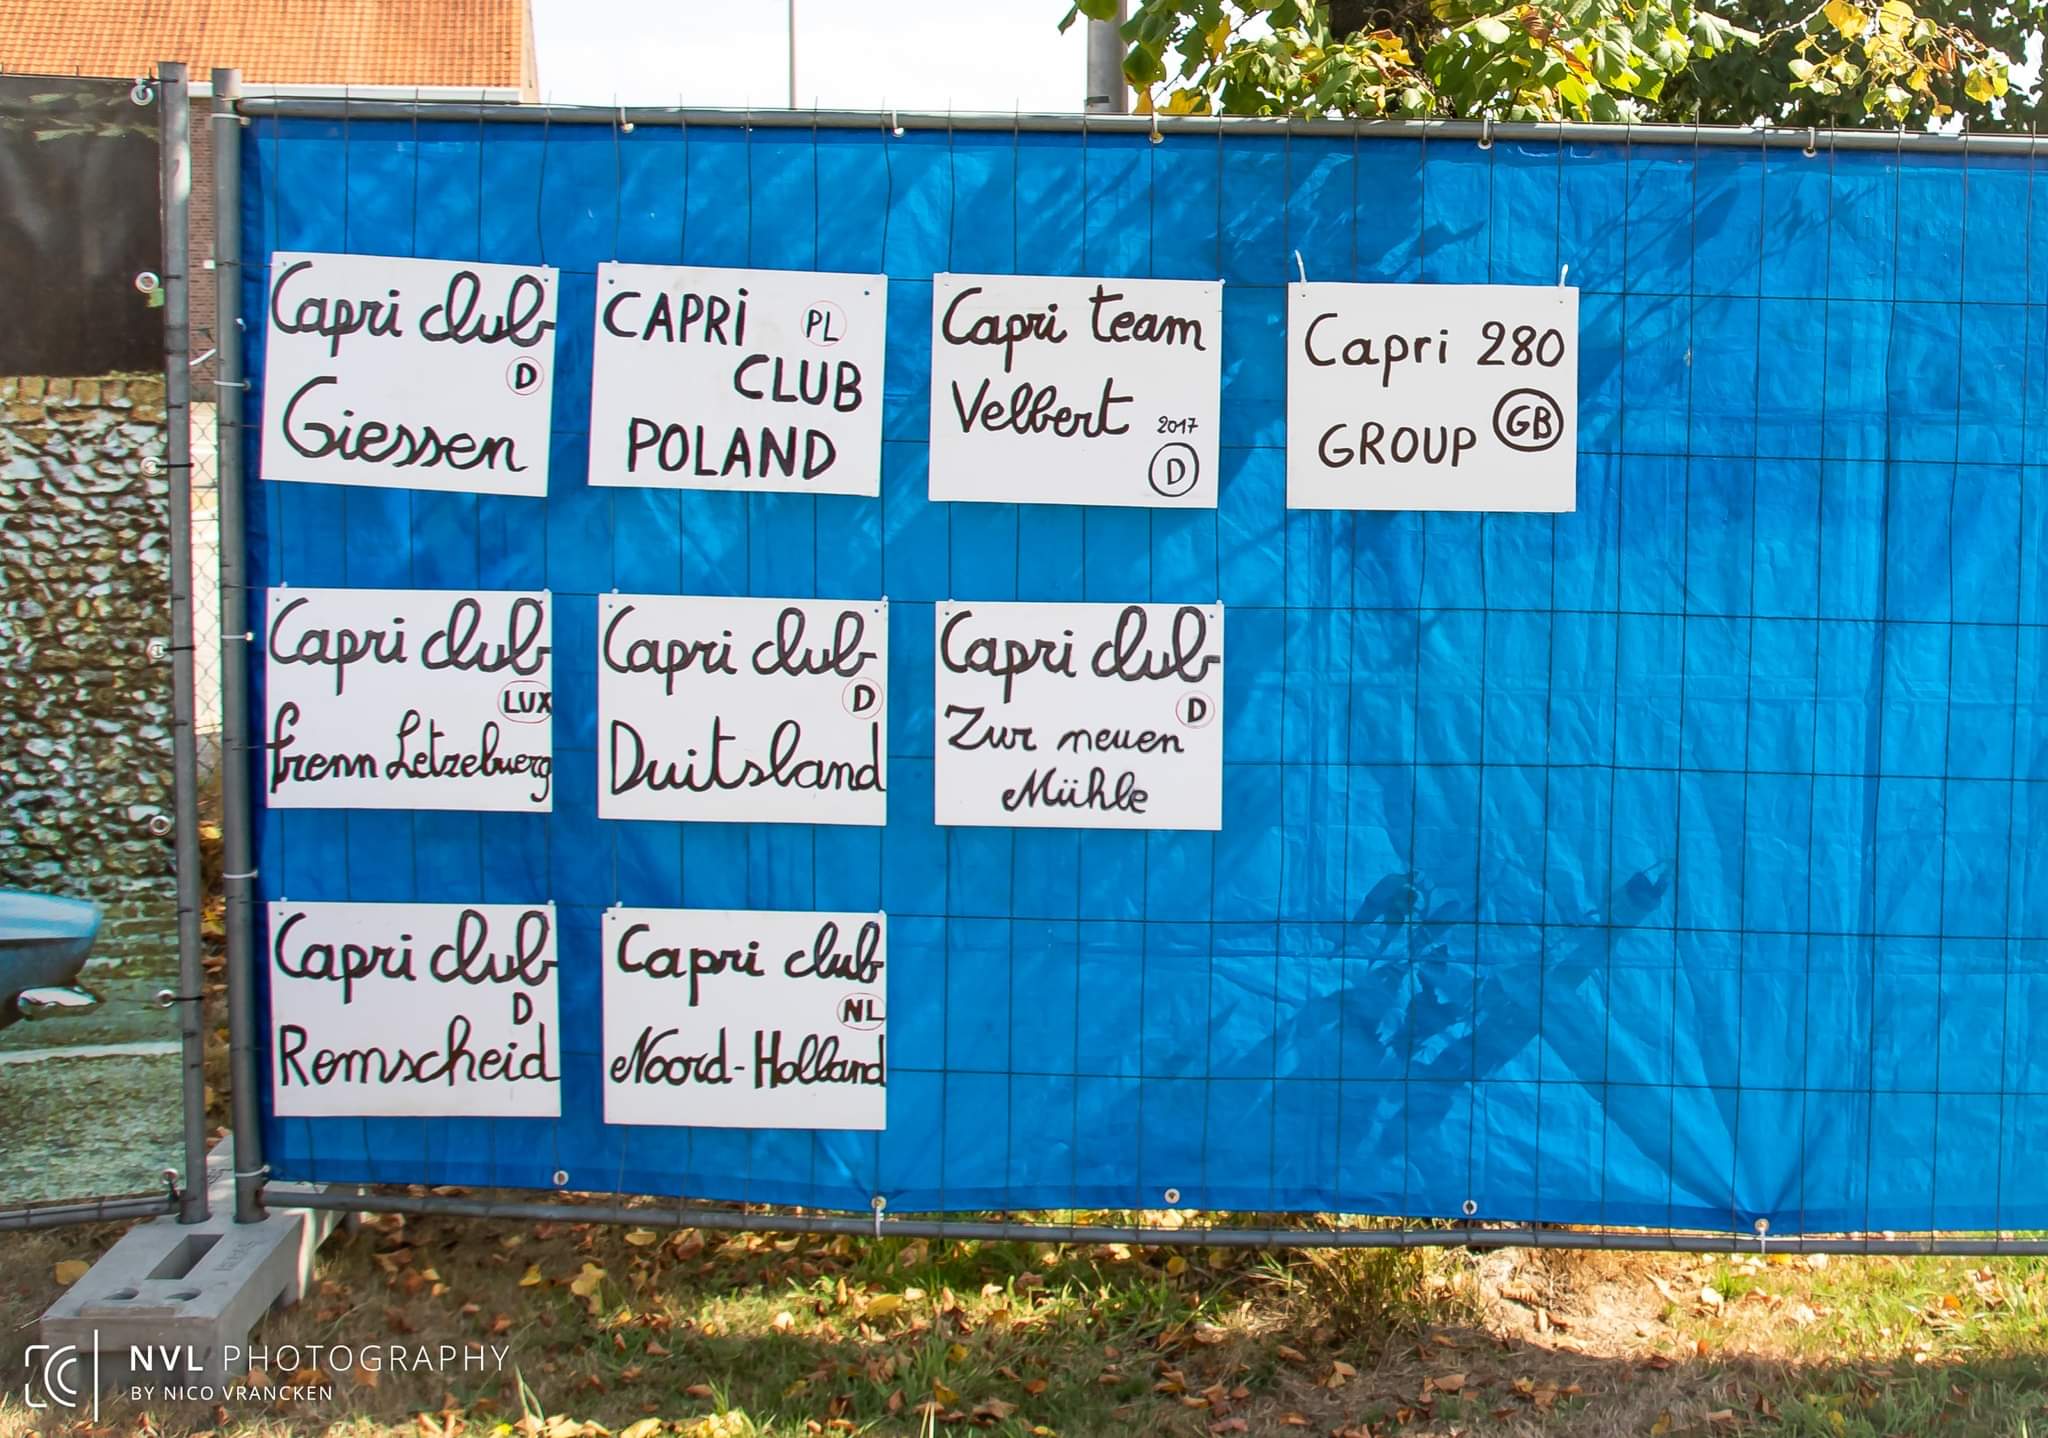 Capri club
D
Giessen
CAPRi PL
CLUB
POLAND
Capri team
Velbert 2017
D
Capri 280
GROUP GB
Capri club
LUX
frenn Letzebuerg
Capri club
D
Duitsland
Capri club
D
Zur neuen
Mühle
Capri club
D
Romscheid
Capri club
NL
Noord-Holland
NVL PHOTOGRAPHY
BY NICO VRANCKEN